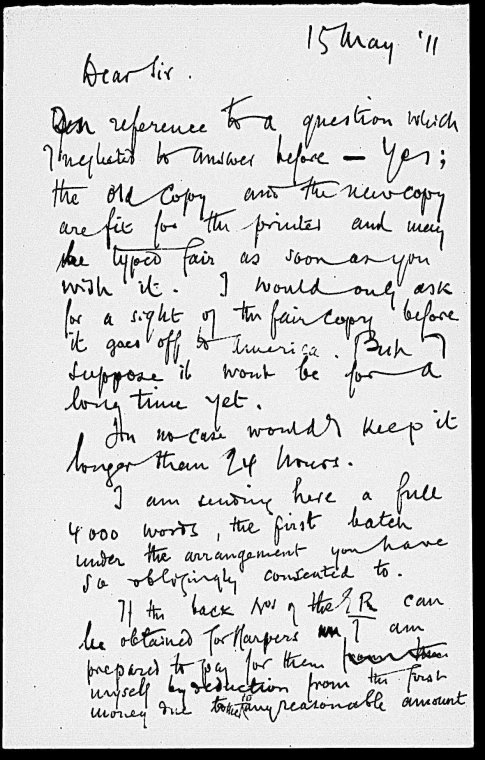 15 May '11
Dear Sir.
In reference to a question which
I neglected to answer before — Yes;
the old copy and the new copy
are fit for the printer and may
be typed fair as soon as you
wish it. I would only ask
for a sight of the fair copy before
it goes off to America. But I
suppose it wont be for a
long time yet.
In no case would I keep it
longer than 24 hours.
I am sending here a full
4000 words, the first batch
under the arrangement you have
so obligingly consented to.
If the back Nos of the E R can
be obtained for Harpers I am
prepared to pay for them from
myself by deduction from the first
money due to any reasonable amount